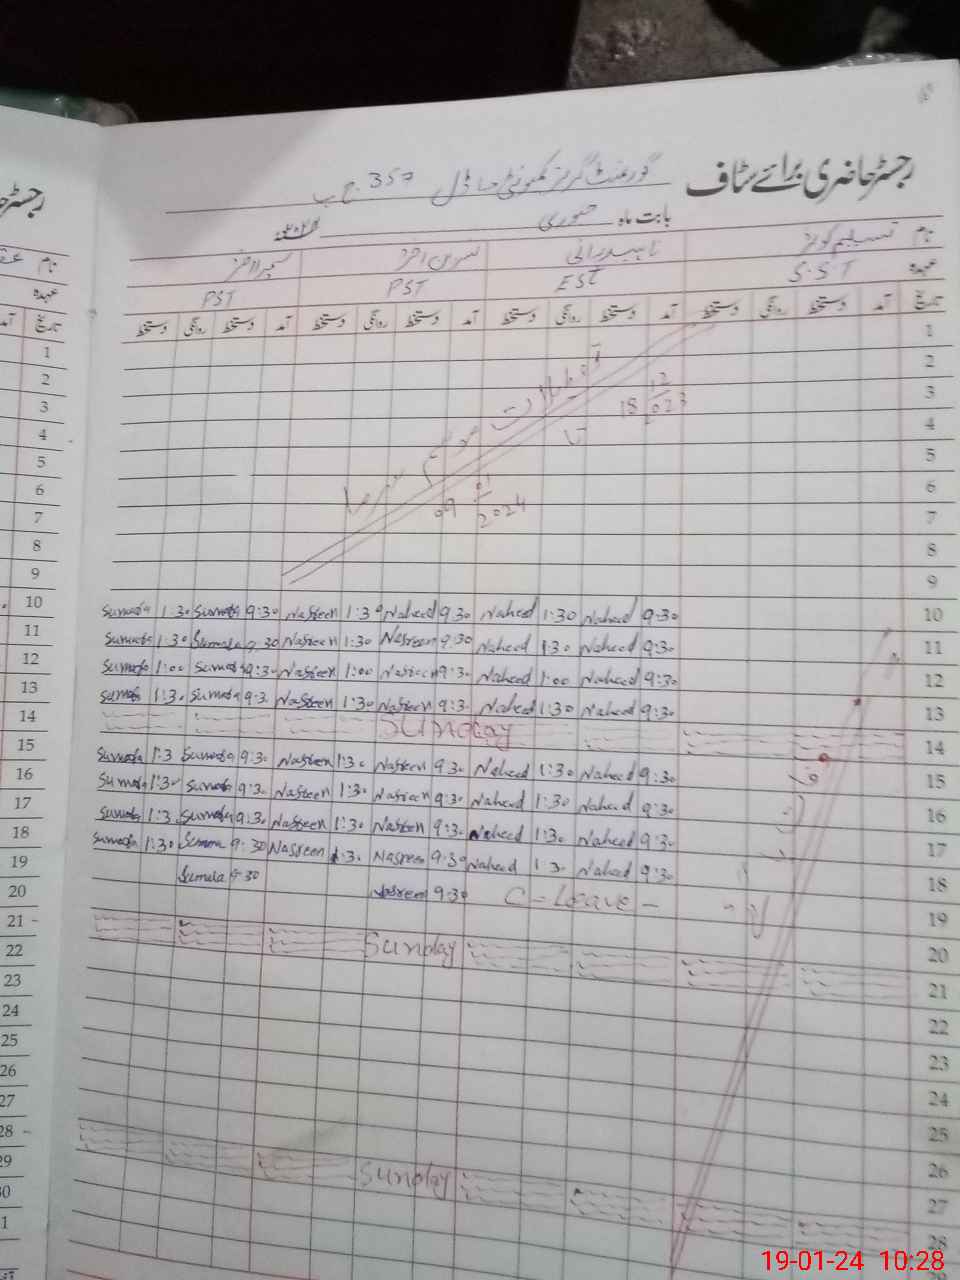 رجسٹر حاضری برائے سٹاف گورنمنٹ گرلز کمیونٹی ماڈل 357 ج ب
بابت ماہ جنوری
نام تسلیم کوثر ناہید رانی نسرین اختر
عہدہ S.S.T EST PST PST
تاریخ آمد دستخط روانگی دستخط آمد دستخط روانگی دستخط آمد دستخط روانگی دستخط آمد دستخط روانگی دستخط
1
2
تعطیلات موسم سرما 18 12 2023 تا 09 01 2024
3
4
5
6
7
8
9
Sumaira 1:30 Sumaira 9:30 Nasreen 1:30 Naheed 9:30 Naheed 1:30 Naheed 9:30 10
Sumaira 1:30 Sumaira 9:30 Nasreen 1:30 Nasreen 9:30 Naheed 1:30 Naheed 9:30 11
Sumaira 1:00 Sumaira 9:30 Nasreen 1:00 Nasreen 9:30 Naheed 1:00 Naheed 9:30 12
Sumaira 1:30 Sumaira 9:3 Nasreen 1:30 Nasreen 9:3 Naheed 1:30 Naheed 9:30 13
Sunday 14
Sumaira 1:3 Sumaira 9:30 Nasreen 1:30 Nasreen 9:30 Naheed 1:30 Naheed 9:30 15
Sumaira 1:30 Sumaira 9:30 Nasreen 1:30 Nasreen 9:30 Naheed 1:30 Naheed 9:30 16
Sumaira 1:3 Sumaira 9:30 Nasreen 1:30 Nasreen 9:30 Naheed 1:30 Naheed 9:30 17
Sumaira 1:30 9:30 Nasreen 1:30 Nasreen 9:30 Naheed 1:30 Naheed 9:30 18
Sumaira 9:30 Nasreen 9:30 C - Leave - 19
20
Sunday 21
22
23
24
25
26
27
Sunday 28
19-01-24 10:28